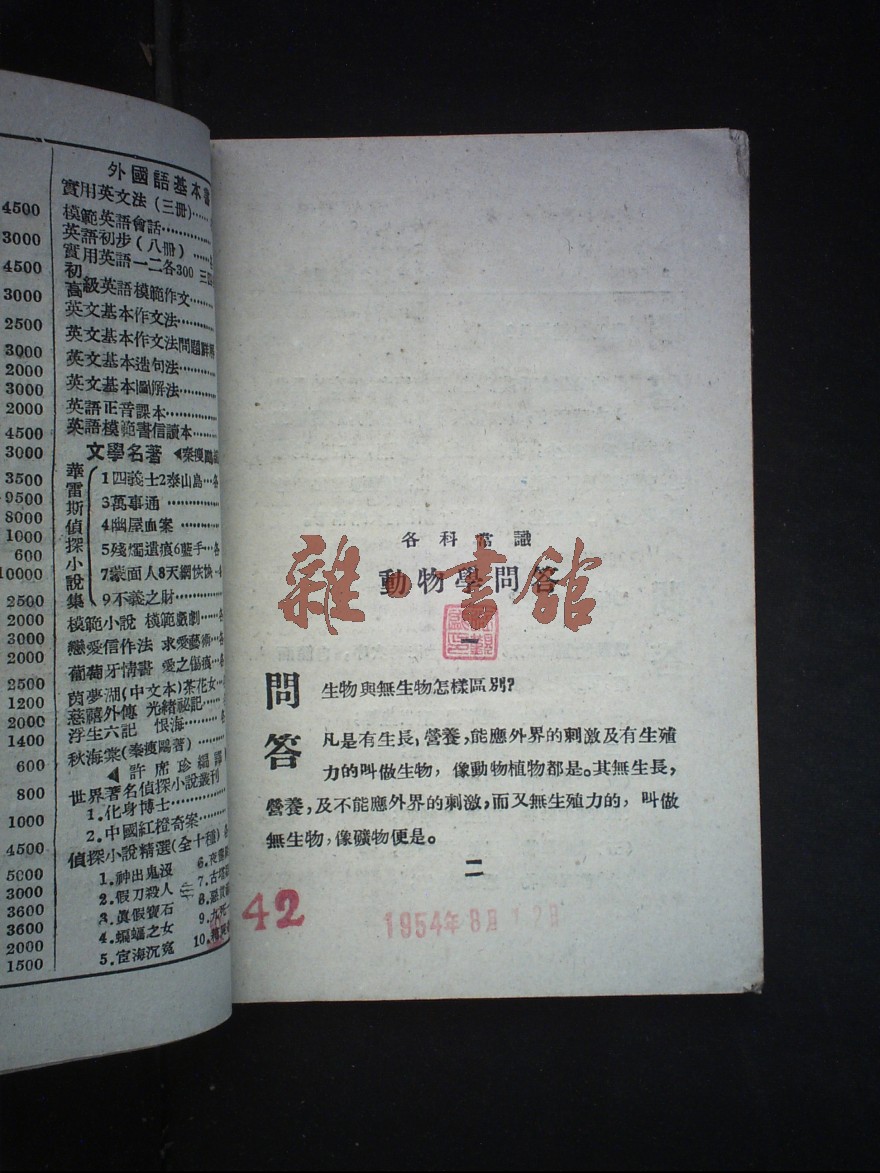 4500
3000
4500
3000
2500
3000
2000
3000
2000
4500
3000
3500
9500
8000
1000
600
10000
2500
2000
3000
2000
2500
1200
2000
1400
600
800
1000
4500
5000
3000
3600
3600
2000
1500
外國語基本書
實用英文法(三冊)……
模範英語會話…………
英語初步(八冊)……
實用英語一二各300 三四
初
高級英語模範作文……
英文基本作文法………
英文基本作文法問題詳解
英文基本造句法………
英文基本圖解法………
英語正音課本…………
英語模範書信讀本……
文學名著 ◀秦瘦鷗
華雷斯偵探小說集
1四義士2泰山島…各
3萬事通…………
4幽屋血案………
5殘燭遺痕6藍手…各
7蒙面人8天網恢恢…各
9不義之財………
模範小說 模範戲劇……
戀愛信作法 求愛藝術…各
葡萄牙情書 愛之傷痕…各
茵夢湖(中文本)茶花女…
慈禧外傳 光緒祕記……
浮生六記 恨海……各
秋海棠(秦瘦鷗著)………
◀許席珍編譯
世界著名偵探小說叢刊
1.化身博士…………
2.中國紅橙奇案………
偵探小說精選(全十種)各
1.神出鬼沒 6.夜
2.假刀殺人 7.古塔
3.眞假寶石 8.
4.蝙蝠之女 9.
5.宦海沉冤 10.
各科常識
動物學問答
雜·書館
一
問 生物與無生物怎樣區別?
答 凡是有生長,營養,能應外界的刺激及有生殖
力的叫做生物,像動物植物都是。其無生長,
營養,及不能應外界的刺激,而又無生殖力的,叫做
無生物,像礦物便是。
二
42
1954年8月12日